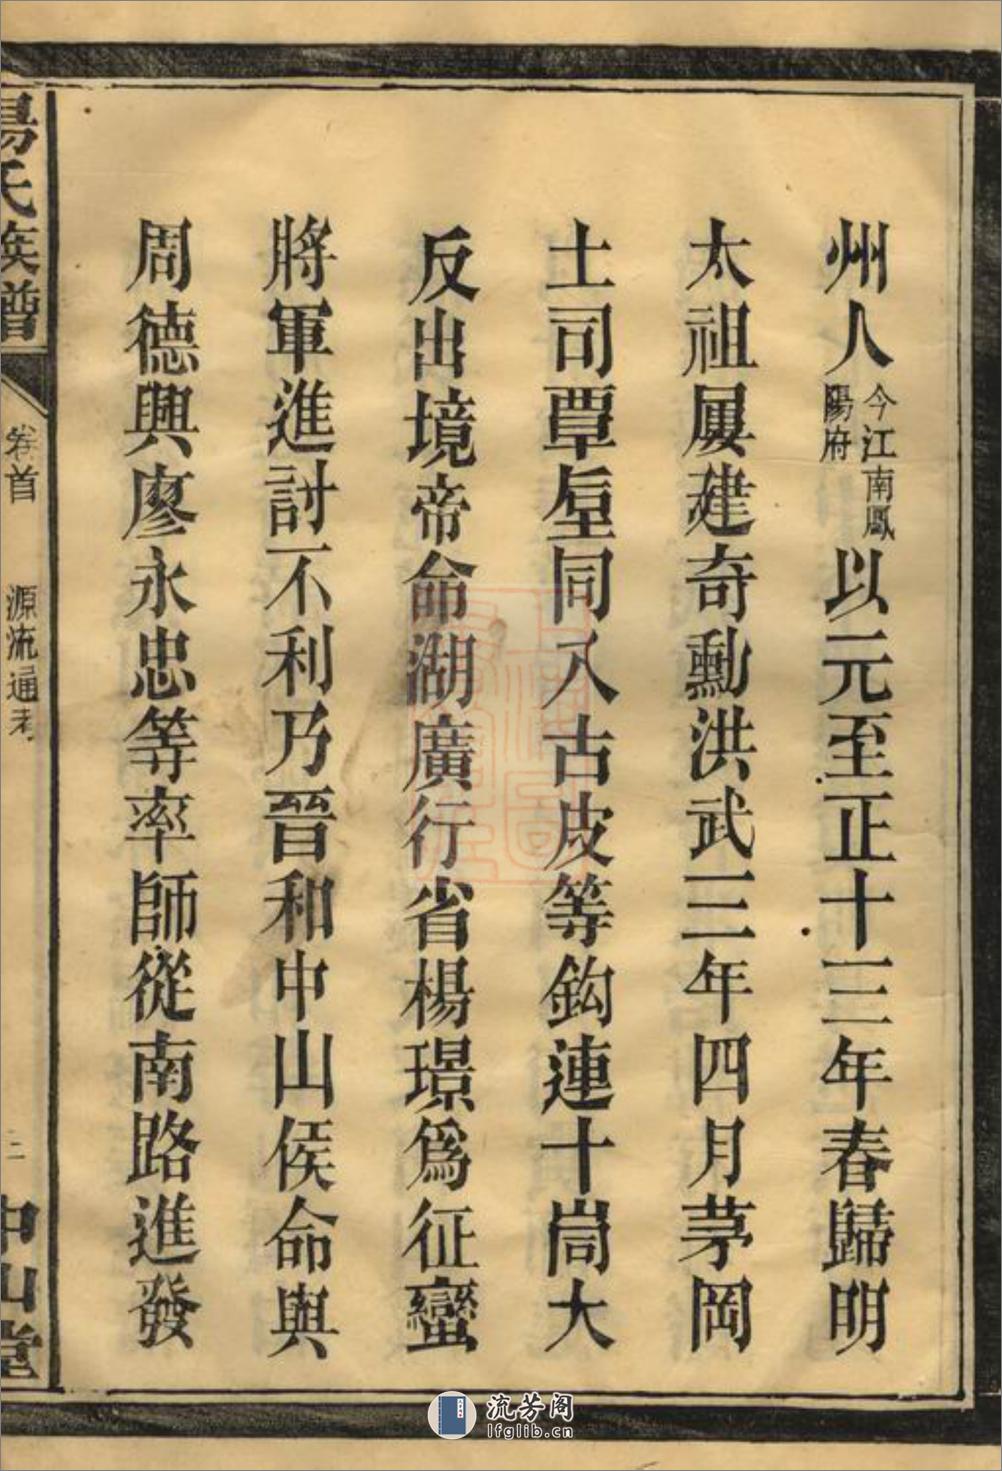 州人今江南鳳陽府以元至正十三年春歸明
太祖屢建奇勳洪武三年四月茅岡
土司覃垕同入古皮等鈎連十峝大
反出境帝命湖廣行省楊璟爲征蠻
將軍進討不利乃晉和中山侯命與
周德興廖永忠等率師從南路進發
氏族譜
卷首
源流通考
中山堂
流芳阁
lfglib.cn